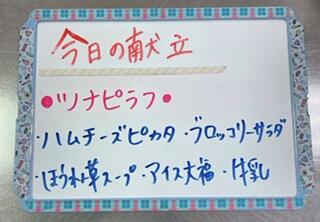 今日の献立
●ツナピラフ●
・ハムチーズピカタ・ブロッコリーサラダ
・ほうれん草スープ・アイス大福・牛乳